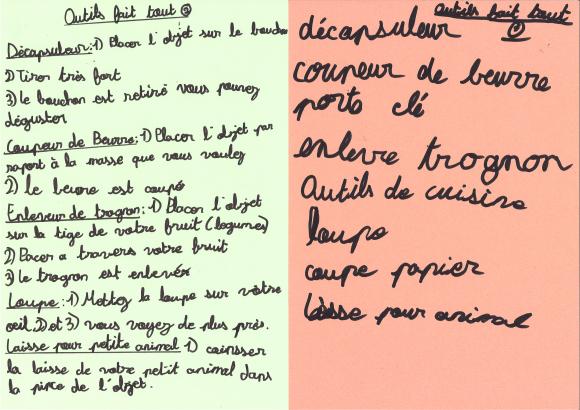 Outils fait tout
Décapsuleur: 1) Placer l'objet sur le bouchon
2) Tirer très fort
3) le bouchon est retiré vous pouvez
déguster
Coupeur de Beurre: 1) Placer l'objet par
raport à la masse que vous voulez
2) le beurre est coupé
Enleveur de trognon: 1) Placer l'objet
sur la tige de votre fruit (legumes)
2) Pacer a travers votre fruit
3) le trognon est enlevér
Loupe: 1) Mettez la loupe sur vôtre
oeil. 2) et 3) vous voyez de plus près.
laisse pour petite animal 1)
la laisse de votre petit animal dans
la pince de l'objet.
outils fait tout
décapsuleur
coupeur de beurre
porte clé
enlevre trognon
Outils de cuisine
loupe
coupe papier
laisse pour animal